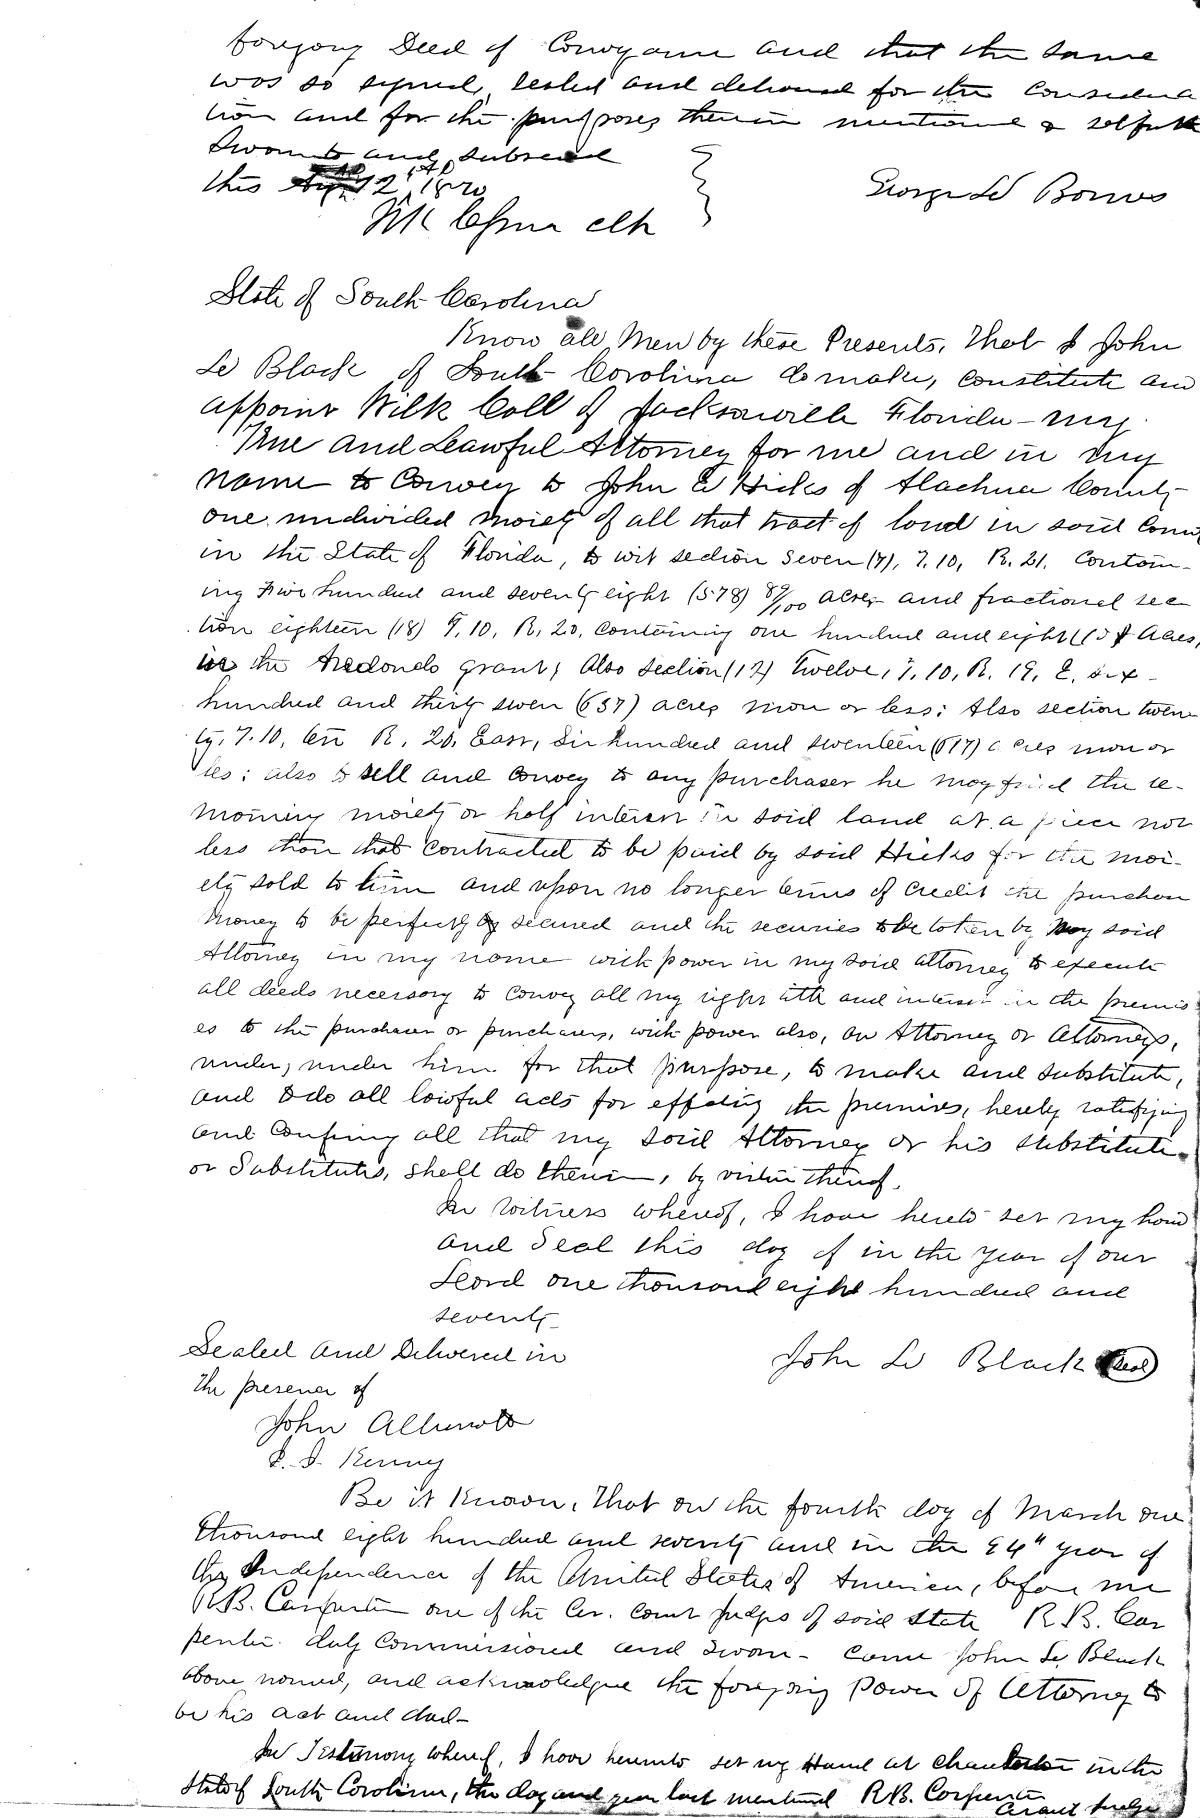 foregoing Deed of Conveyance and that the same
was so signed, sealed and delivered for the considera
tion and for the purposes therein mentioned & set forth
Sworn to and subscribed
this 12th 1870
George W Bowes
clk
State of South Carolina
Know all Men by these Presents, That I John
L Black of South Carolina do make, constitute and
appoint Wilk Call of Jacksonville Florida - my
True and Lawful Attorney for me and in my
name to convey to John E Hicks of Alachua County
one undivided moiety of all that tract of land in said County
in the State of Florida, to wit section seven (7), T. 10, R. 21. Contain-
ing Five hundred and seventy eight (578) 89/100 acres and fractional sec
tion eighteen (18) T. 10, R. 20, containing one hundred and eight (108) acres,
in the Aredondo grant; Also section (12) Twelve, T. 10, R. 19, E. six
hundred and thirty seven (637) acres more or less; Also section twen
ty, T. 10, R. 20, East, Six hundred and seventeen (617) acres more or
les; also to sell and convey to any purchaser he may find the re-
maining moiety or half interest in said land at a price not
less than that contracted to be paid by said Hicks for the moi-
ety sold to him and upon no longer terms of credit the purchase
money to be perfectly secured and the securies to be taken by my said
Attorney in my name with power in my said attorney to execute
all deeds necessary to convey all my right title and interest in the premis
es to the purchaser or purchasers, with power also, an Attorney or Attorneys,
under, under him for that purpose, to make and substitute,
and to do all lawful acts for effecting the premises, hereby ratifying
and confirming all that my said Attorney or his substitute
or Substitutes, shall do therein, by virtue thereof.
In witness whereof, I have hereto set my hand
and Seal this day of in the year of our
Lord one thousand eight hundred and
seventy
Sealed and Delivered in
the presence of
John L Black (Seal)
John
J. J. Kenny
Be it Known, That on the fourth day of March one
thousand eight hundred and seventy and in the 94" year of
the Independence of the United States of America, before me
R.B. Carpenter one of the Cir. Court Judges of said State R.B. Car
penter duly commissioned and sworn - came John L Black
above named, and acknowledge the foregoing Power of Attorney to
be his act and deed -
In Testimony whereof, I have hereunto set my Hand at Charleston in the
State of South Carolina, the day and year last mentioned R.B. Carpenter
Circuit Judge